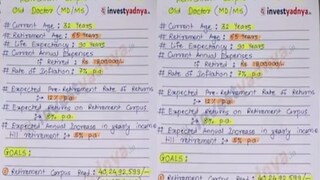 Old Doctor (MD/MS)
investyadnya.
* Current Age : 32 Years
* Retirement Age : 55 Years
* Life Expectancy : Years
* Current Annual Expenses
if Retired : Rs
* Rate of Inflation : 7% p.a.
* Expected Pre-Retirement Rate of Returns
: 12% p.a.
* Expected Returns on Retirement Corpus
: 8% p.a.
* Expected Annual Increase in yearly income
till retirement : 5% p.a
GOALS :
① Retirement Corpus Reqd : 40,24,92,593/-
Old Doctor (MD/MS)
investyadnya.
* Current Age : 32 Years
* Retirement Age : 55 Years
* Life Expectancy : Years
* Current Annual Expenses
if Retired : Rs
* Rate of Inflation : 7% p.a.
* Expected Pre-Retirement Rate of Returns
: 12% p.a.
* Expected Returns on Retirement Corpus
: 8% p.a.
* Expected Annual Increase in yearly income
till retirement : 5% p.a
GOALS :
① Retirement Corpus Reqd : 40,24,92,593/-